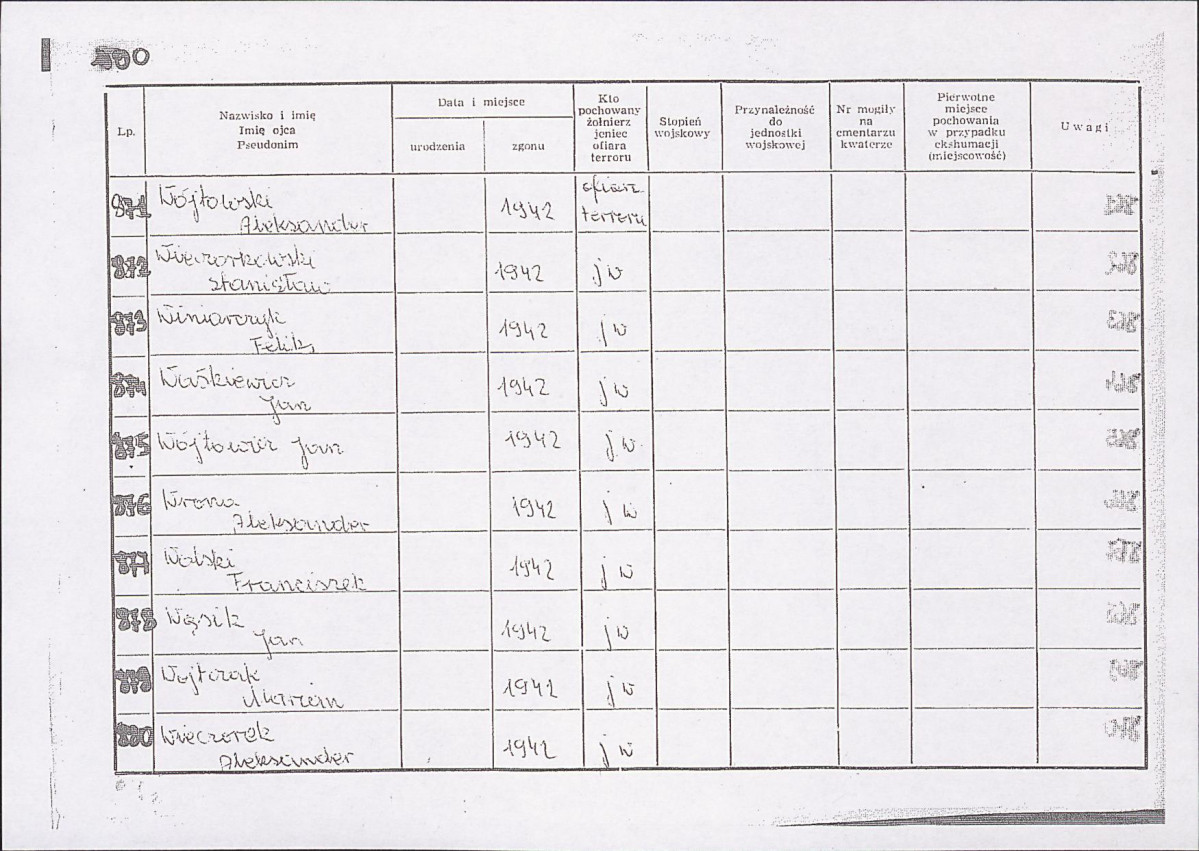 Lp.
Nazwisko i imię
Imię ojca
Pseudonim
Data i miejsce
urodzenia
zgonu
Kto
pochowany
żołnierz
jeniec
ofiara
terroru
Stopień
wojskowy
Przynależność
do
jednostki
wojskowej
Nr mogiły
na
cmentarzu
kwaterze
Pierwotne
miejsce
pochowania
w przypadku
ekshumacji
(miejscowość)
Uwagi
871 Wójtowski
Aleksander
1942
ofiara
terroru
872 Wieczorkowski
Stanisław
1942 j w
873 Winiarczyk
Feliks
1942 j w
874 Waśkiewicz
Jan
1942 j w
875 Wójtowicz Jan 1942 j w
876 Wrona
Aleksander
1942 j w
877 Wolski
Franciszek
1942 j w
878 Wąsik
Jan
1942 j w
879 Wojtczak
Marcin
1942 j w
880 Wieczorek
Aleksander
1942 j w